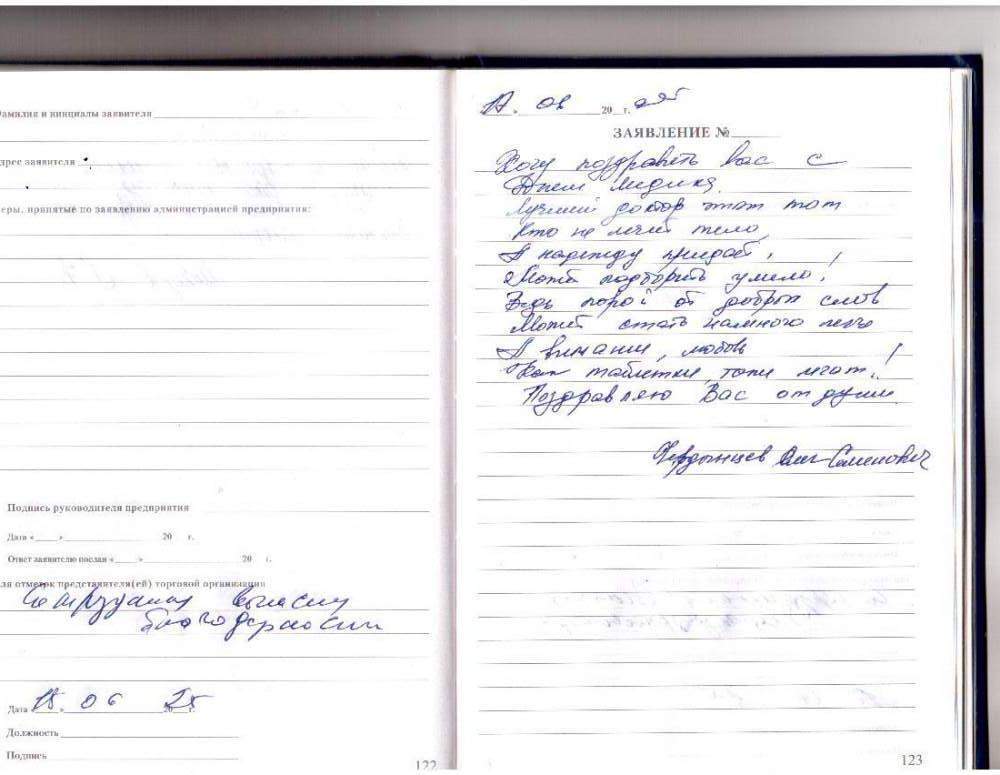 Фамилия и инициалы заявителя
дрес заявителя
еры, принятые по заявлению администрацией предприятия:
Подпись руководителя предприятия
Дата «____» 20 г.
Ответ заявителю послан «____» 20 г.
ля отметок представителя(ей) торговой организации
Сотрудникам вынесены
благодарности
Дата 18 » 06 20 25 г.
Должность
Подпись
122
20 г.
ЗАЯВЛЕНИЕ №
Хочу поздравить вас с
Днем медика.
Лучший доктор этот тот
Кто не лечит тело,
А надежду придаёт,
Может подбодрить умело!
Ведь порой от добрых слов
Может стать намного легче
А внимание, любовь
Как таблетки, тоже лечат!
Поздравляю Вас от души.
Олег Семенович
123